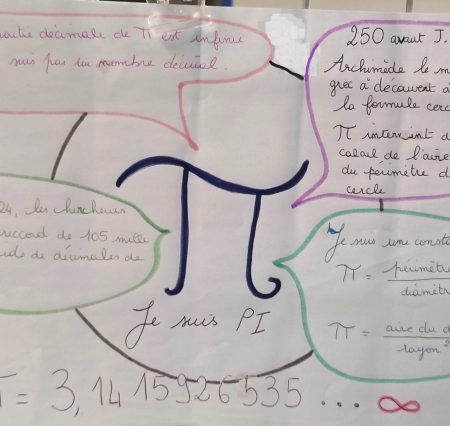 autre décimale de π est infinie
suis pas un nombre décimal.
250 avant J.
Archimède le m
grec a découvert a
la formule cerc
π intervient d
calcul de l'aire
du périmètre d
cercle
24, les chercheurs
reccord de 105 mille
de décimales de
Je suis une consta
π = périmètre
diamètr
π = aire du d
rayon²
Je suis PI
π = 3,1415926535 ... ∞